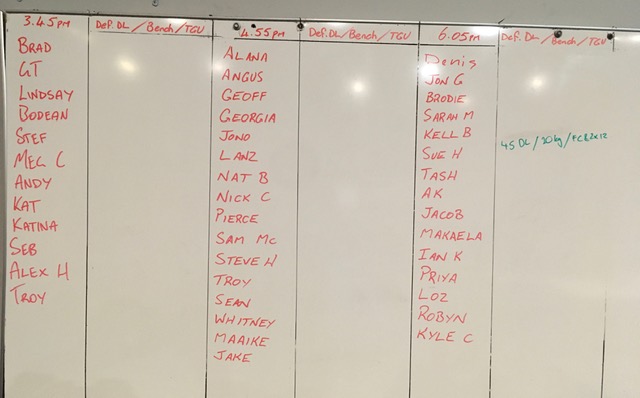 3.45PM
BRAD
GT
LINDSAY
BODEAN
STEF
MEG C
ANDY
KAT
KATINA
SEB
ALEX H
TROY
Def. DL / Bench / TGU
4.55PM
ALANA
ANGUS
GEOFF
GEORGIA
JONO
LANZ
NAT B
NICK C
PIERCE
SAM MC
STEVE H
TROY
SEAN
WHITNEY
MAAIKE
JAKE
Def. DL / Bench / TGU
6.05PM
Denis
JON G
BRODIE
SARAH M
KELL B
SUE H
TASH
AK
JACOB
MAKAELA
IAN K
PRIYA
LOZ
ROBYN
KYLE C
Def. DL / Bench / TGU
45 DL / 20kg /